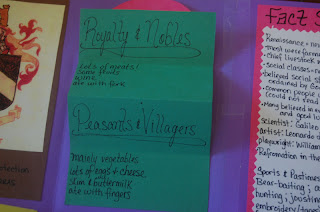 Royalty & Nobles
Lots of meats!
Some fruits
wine
ate with fork
Peasants & Villagers
mainly vegetables
lots of eggs & cheese
skim & buttermilk
ate with fingers
Fact S
Renaissance =
most were farm
Chief livestock
social classes -
believed social st
ordained by Go
common people
could not read
Many believed in
and good lo
Scientist: Galileo
artist: Leonardo
playwright: William
Reformation in the
Sports & Pastimes
Bear-baiting; a
hunting; jousting
embroidery/tape
otection